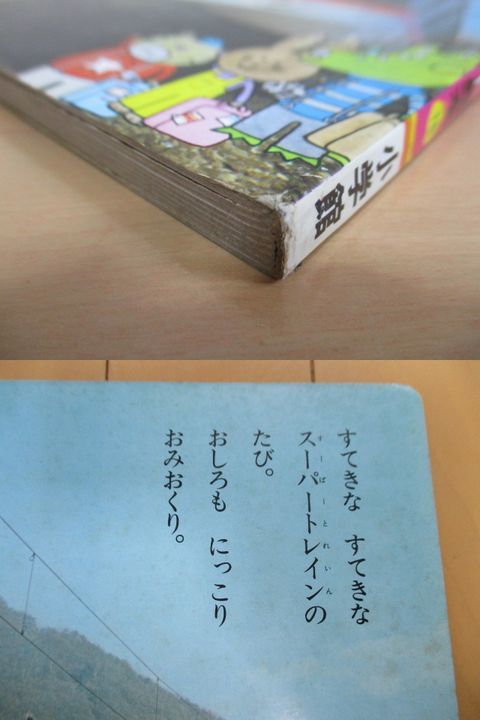 小学館
すてきな すてきな
スーパートレインの
すーぱーとれいん
たび。
おしろも にっこり
おみおくり。